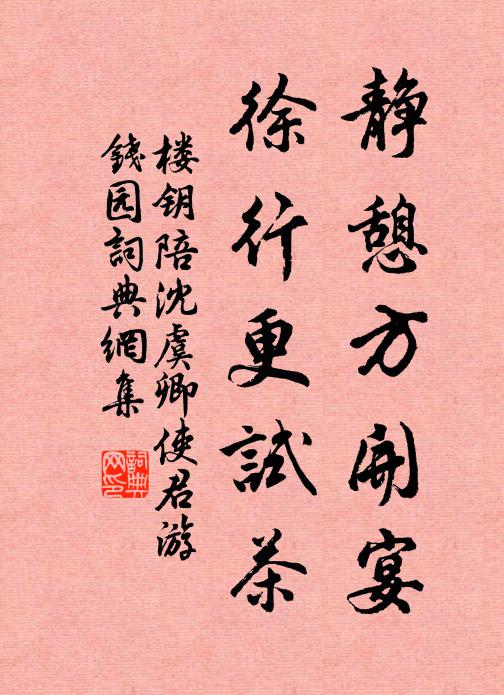 静憩方開宴
徐行更試茶
楼钥陪沈虞卿使君游
錢园詞典網集
詞典网印